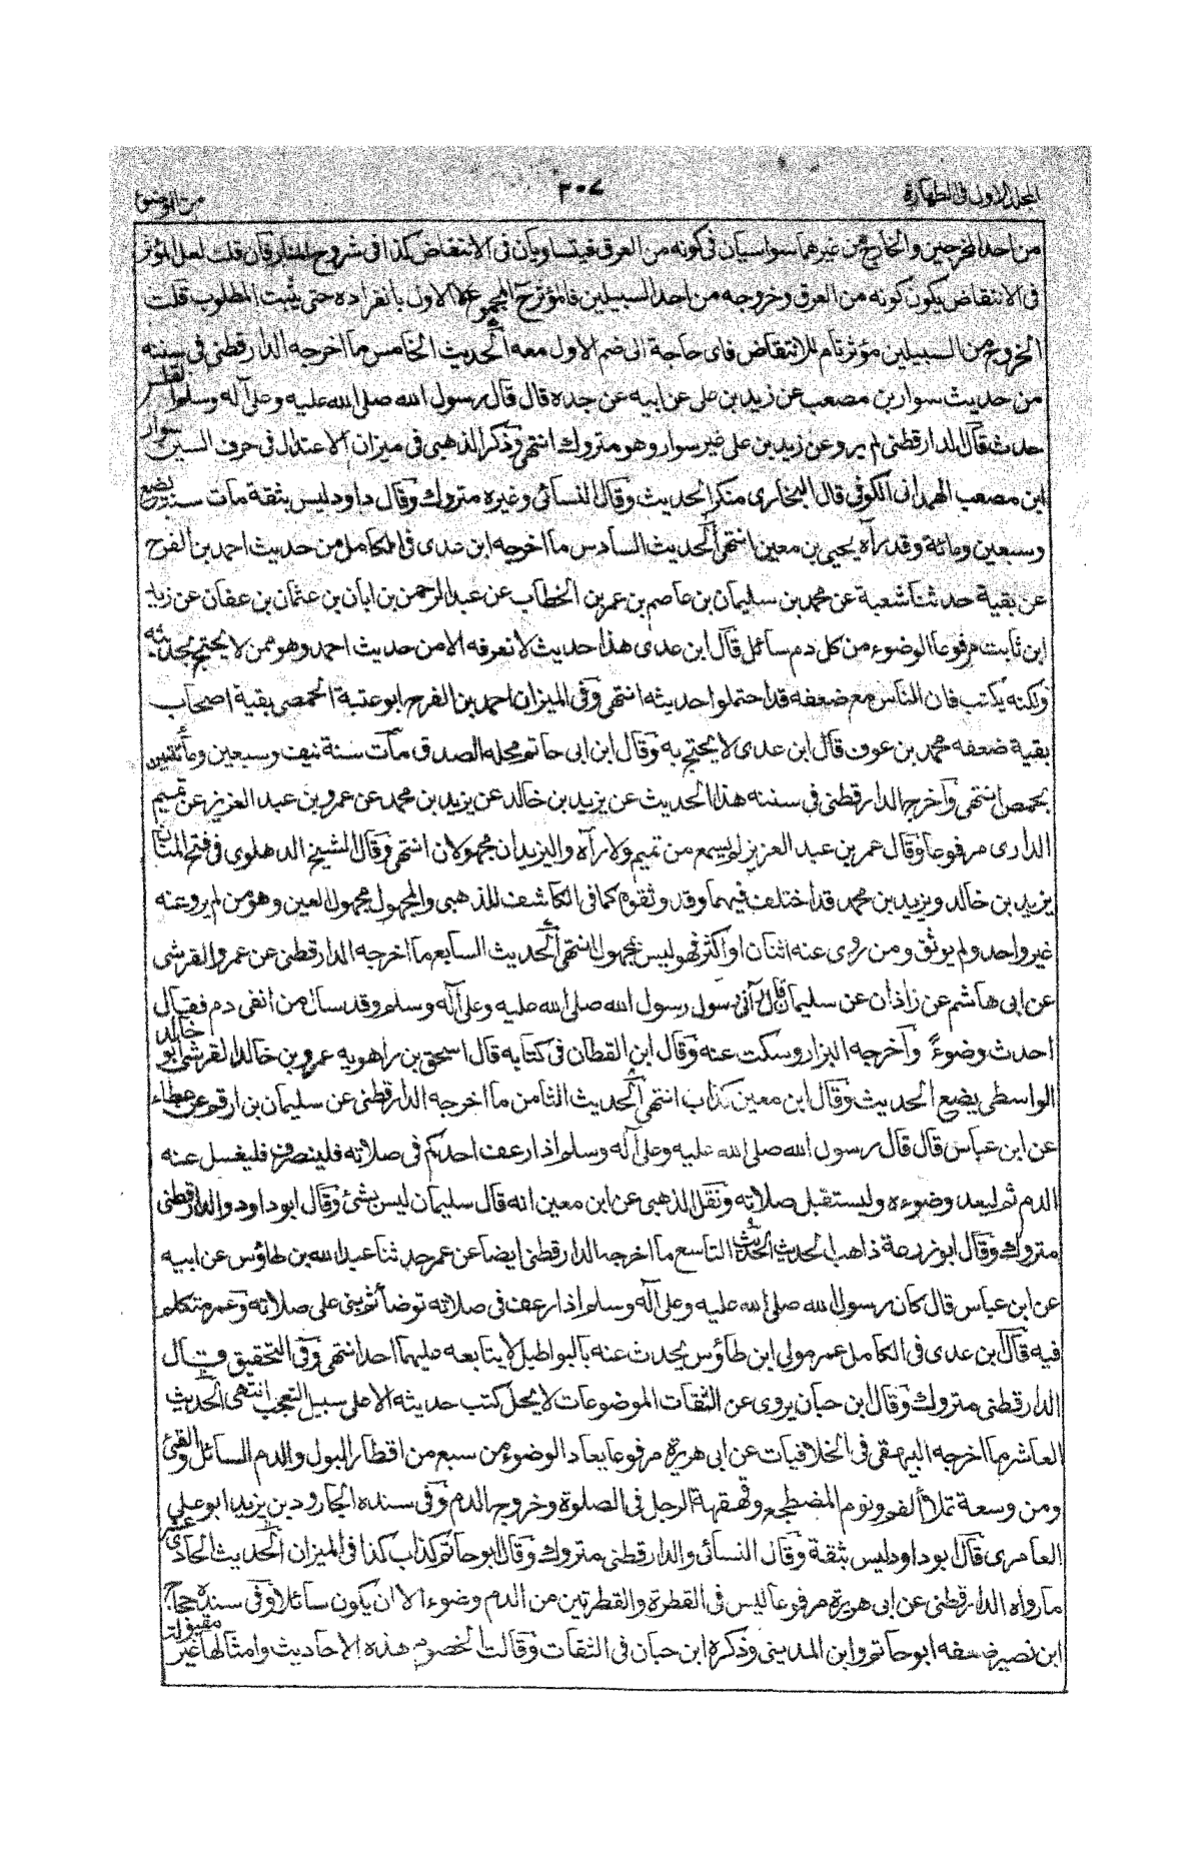 المجلد الاول فى الطهارة
٢٠٧
من الوضوء
من احد المخرجين والخارج من غيرهما سواسيان فى كونه من العرق فيتساويان فى الانتقاض كذا فى شروح المنار فان قلت لعل المؤثر
فى الانتقاض يكون كونه من العرق وخروجه من احد السبيلين فالمؤثر ح المجموع لا الاول بانفراده حتى يثبت المطلوب قلت
الخروج من السبيلين مؤثر تام للانتقاض فاى حاجة الى ضم الاول معه الحديث الخامس ما اخرجه الدار قطنى فى سننه
من حديث سوار بن مصعب عن زيد بن على عن ابيه عن جده قال قال رسول الله صلى الله عليه وعلى آله وسلم القلس
حدث قال الدار قطنى لم يروه عن زيد بن على غير سوار وهو متروك انتهى وذكر الذهبى فى ميزان الاعتدال فى حرف السين سوار
ابن مصعب الهمدانى الكوفى قال البخارى منكر الحديث وقال النسائى وغيره متروك وقال داود ليس بثقة مات سنة بضع
وسبعين ومائة وقد رآه يحيى بن معين انتهى الحديث السادس ما اخرجه ابن عدى فى الكامل من حديث احمد بن الفرح
عن بقية حدثنا شعبة عن محمد بن سليمان بن عاصم بن عمر بن الخطاب عن عبد الرحمن بن ابان بن عثمان بن عفان عن زيد
ابن ثابت مرفوعا الوضوء من كل دم سائل قال ابن عدى هذا حديث لا نعرفه الا من حديث احمد وهو ممن لا يحتج بحديثه
ولكنه يكتب فان الناس مع ضعفه قد احتملوا حديثه انتهى وفى الميزان احمد بن الفرح ابو عتبة الحمصى بقية اصحاب
بقية ضعفه محمد بن عوف قال ابن عدى لا يحتج به وقال ابن ابى حاتم محله الصدق مات سنة نيف وسبعين ومأتين
بحمص انتهى وآخرج الدار قطنى فى سننه هذا الحديث عن يزيد بن خالد عن يزيد بن محمد عن عمرو بن عبد العزيز عن تميم
الدارى مرفوعا وقال عمر بن عبد العزيز لم يسمع من تميم ولا رآه واليزيدان مجهولان انتهى وقال الشيخ الدهلوى فى فتح المنان
يزيد بن خالد ويزيد بن محمد قد اختلف فيهما وقد وثقوهم كما فى الكاشف للذهبى والمجهول مجهول العين وهو من لم يرو عنه
غير واحد ولم يوثق ومن روى عنه اثنان او اكثر فهو ليس بمجهول انتهى الحديث السابع ما اخرجه الدار قطنى عن عمرو القرشى
عن ابى هاشم عن زاذان عن سليمان قال رآنى رسول الله صلى الله عليه وعلى آله وسلم وقد سال من انفى دم فقال
احدث وضوءً وآخرجه البزار وسكت عنه وقال ابن القطان فى كتابه قال اسحق بن راهويه عمرو بن خالد القرشى ابو خالد
الواسطى يضع الحديث وقال ابن معين كذاب انتهى الحديث الثامن ما اخرجه الدار قطنى عن سليمان بن ارقم عن عطاء
عن ابن عباس قال قال رسول الله صلى الله عليه وعلى آله وسلم اذا رعف احدكم فى صلاته فلينصرف فليغسل عنه
الدم ثم ليعد وضوءه وليستقبل صلاته ونقل الذهبى عن ابن معين انه قال سليمان ليس بشئ وقال ابو داود والدار قطنى
متروك وقال ابو زرعة ذاهب الحديث الحديث التاسع ما اخرجه الدار قطنى ايضا عن عمر حدثنا عبد الله بن طاؤس عن ابيه
عن ابن عباس قال كان رسول الله صلى الله عليه وعلى آله وسلم اذا رعف فى صلاته توضأ ثم بنى على صلاته وعمر متكلم
فيه قال ابن عدى فى الكامل عمر مولى ابن طاؤس يحدث عنه بالبواطيل لا يتابعه عليها احد انتهى وفى التحقيق قال
الدار قطنى متروك وقال ابن حبان يروى عن الثقات الموضوعات لا يحل كتب حديثه الا على سبيل التعجب انتهى الحديث
العاشر ما اخرجه البيهقى فى الخلافيات عن ابى هريرة مرفوعا يعاد الوضوء من سبع من اقطار البول والدم السائل والقئ
ومن وسعة تملأ الفم ونوم المضطجع وقهقهة الرجل فى الصلوة وخروج الدم وفى سنده الجارود بن يزيد ابو على
العامرى قال ابو داود ليس بثقة وقال النسائى والدار قطنى متروك وقال ابو حاتم كذاب كذا فى الميزان الحديث الحادى عشر
ما رواه الدار قطنى عن ابى هريرة مرفوعا ليس فى القطرة والقطرتين من الدم وضوء الا ان يكون سائلا وفى سنده حجاج
ابن نصير ضعفه ابو حاتم وابن المدينى وذكره ابن حبان فى الثقات وقالت الخصوم هذه الاحاديث وامثالها غير مقبولة